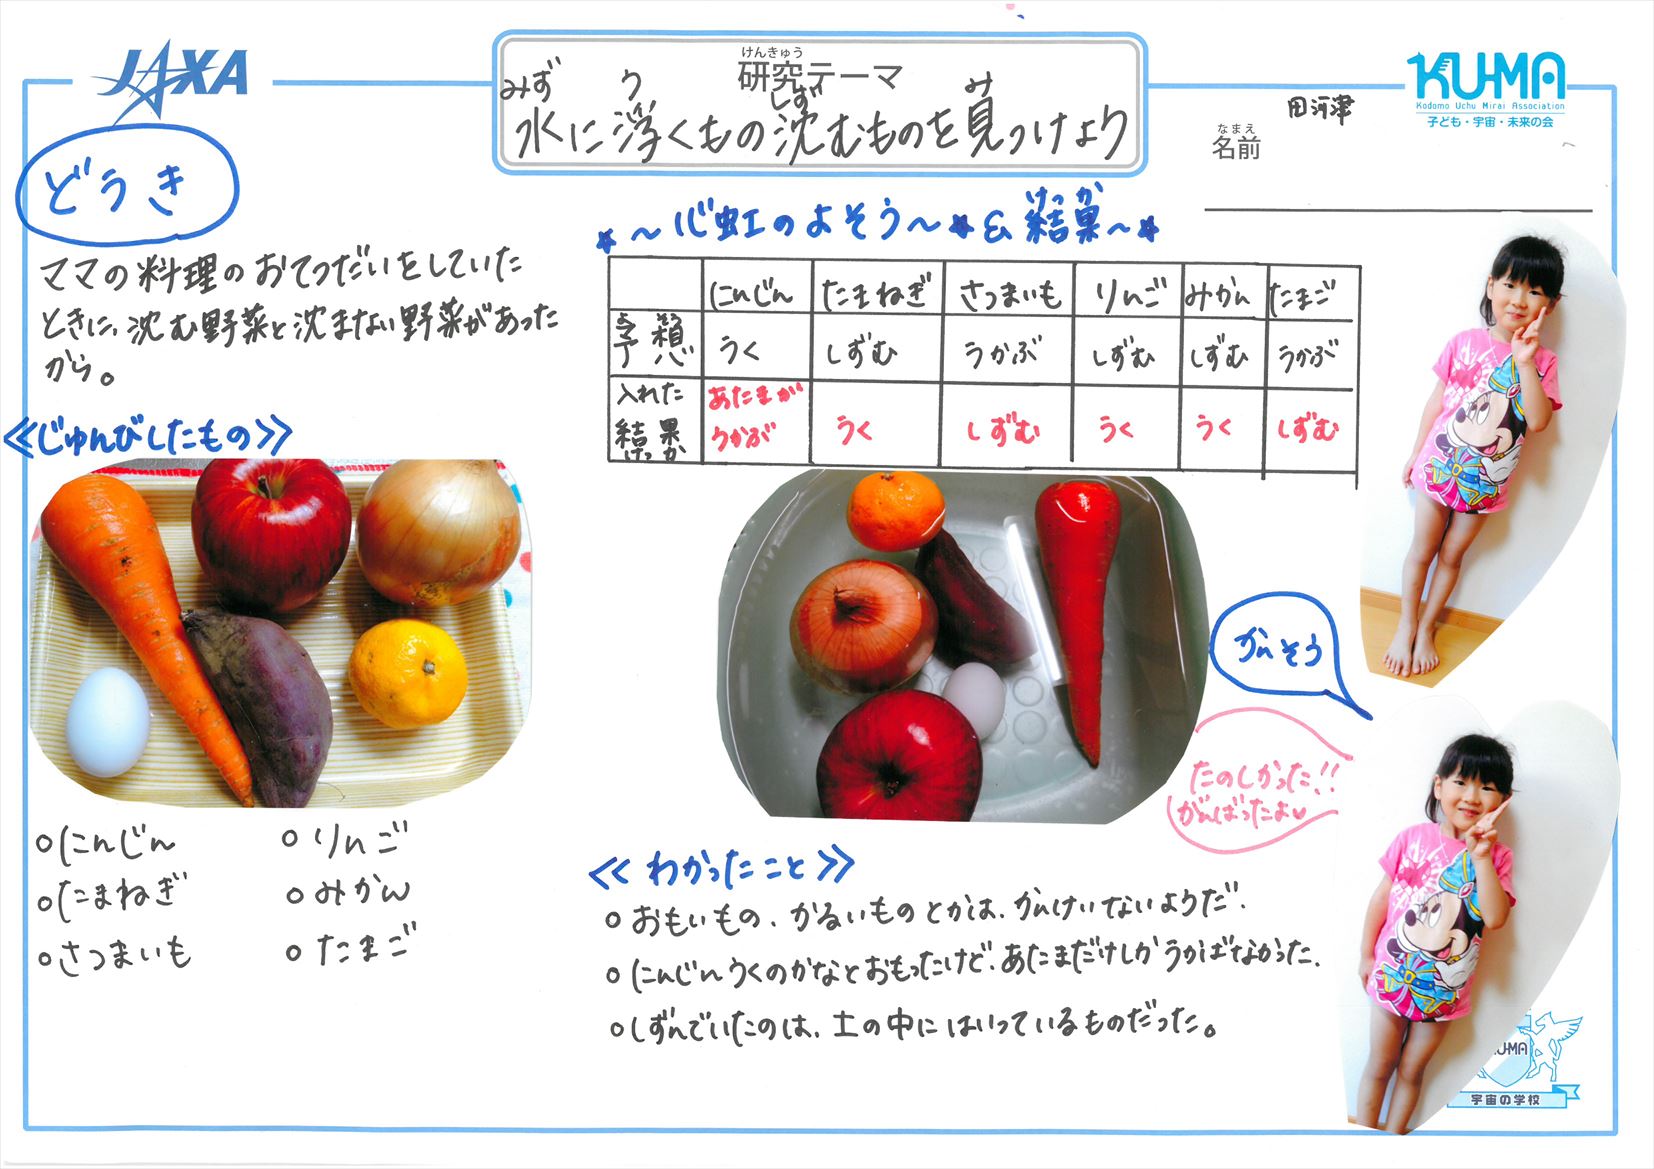 JAXA
けんきゅう
研究テーマ
みず う しず み
水に浮くもの沈むものを見つけよう
KU-MA
Kodomo Uchu Mirai Association
子ども・宇宙・未来の会
田河津
なまえ
名前
どうき
ママの料理のおてつだいをしていた
ときに、沈む野菜と沈まない野菜があった
から。
≪じゅんびしたもの≫
にんじん りんご
たまねぎ みかん
さつまいも たまご
けっか
～心虹のよそう～&結果～
にんじん たまねぎ さつまいも りんご みかん たまご
よそう
予想 うく しずむ うかぶ しずむ しずむ うかぶ
入れた あたまが
結果 うかぶ うく しずむ うく うく しずむ
けっか
かんそう
たのしかった!!
がんばったよ♥
≪わかったこと≫
おもいもの、かるいものとかは、かんけいないようだ。
にんじんうくのかなとおもったけど、あたまだけしかうかばなかった。
しずんでいたのは、土の中にはいっているものだった。
KU-MA
宇宙の学校